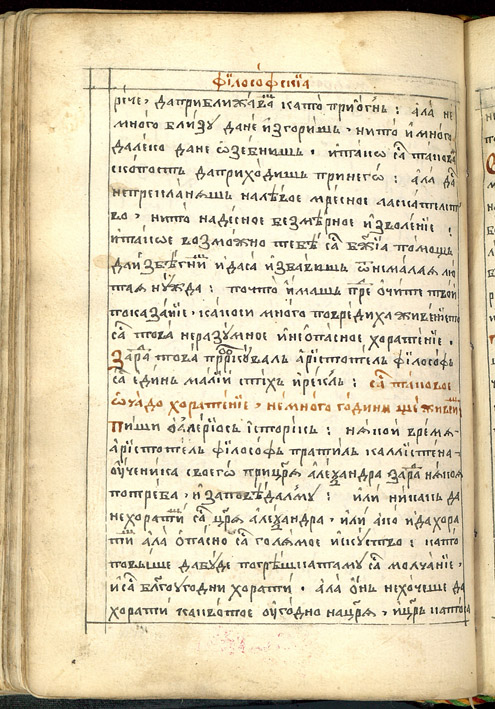 філосо́фскїа
рече, да приближаваш като при огнь : ала не
много близу да не изгориш, нито и много
далеко да не озебниш, и тако са таковаа
скотость да приходиш при него : ала да
непрекланяш на левое мреcное ласкателст
во, нито на десное безмерное изволение :
и такое возможно тебе са бжїа помощь
да избегнїй и да са избавиш ѿ нїмалая лю
тая нужда : почто имаш пре очите твои
показание, какови много повредиха живение то
са това неразумное и неопасное хоратение .
Зара това пррⷪковаль арїстотель філософь
са единь малїй стїхь и рекль : са таковое
ѿ чадо хоратенїе, немного години ще живеїй
Пиши ѡалерїось історїкь : някой время
арїстотель філософь пратиль каллїстена
ѹченика своего при цр҃я алеѯандра зара някоя
потреба, и заповедал му : или никакь да
не хорати са цр҃я алеѯандра, или ако и да хора
ти ала опасно са голямое искуство : като
повыше да буде погрешката му са молчание,
и са благоугодни хорати . ала онь не хочеше да
хорати каквотое ѹгодно на цр҃я, и цр҃ь като са